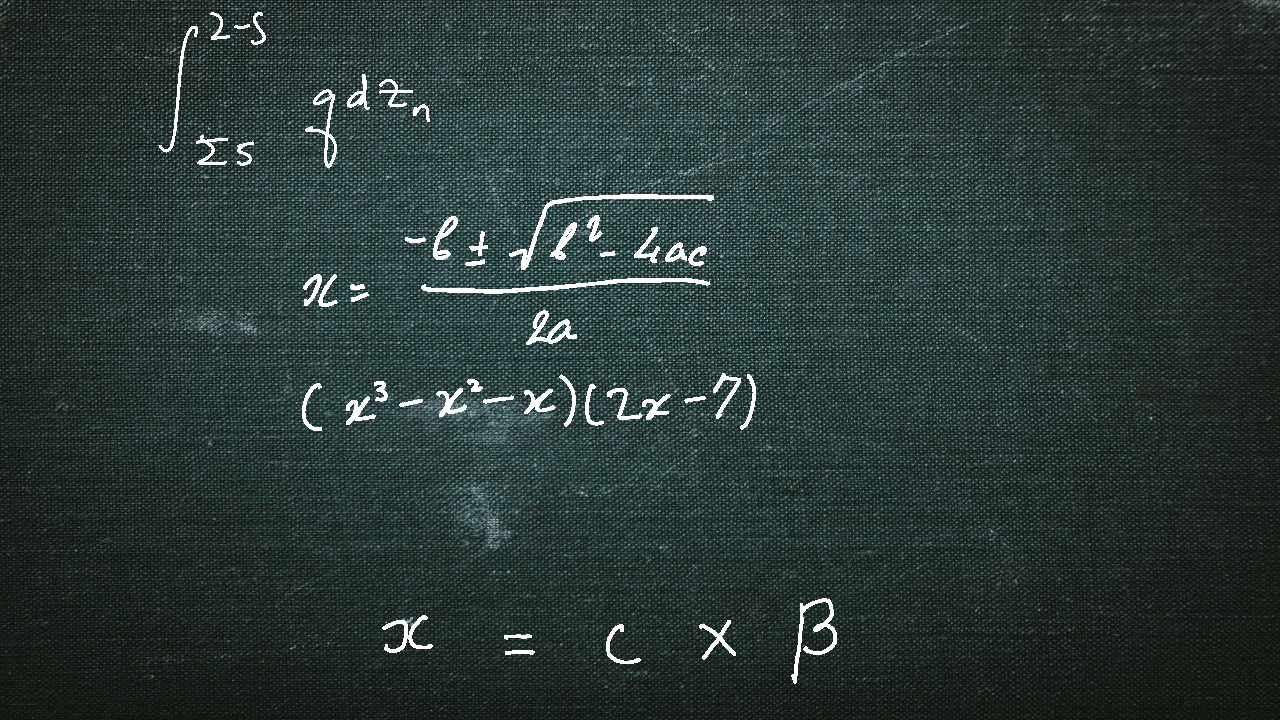 ∫_{Σs}^{2-s} q dz_n
x = \frac{-b ± \sqrt{b^2 - 4ac}}{2a}
(x^3 - x^2 - x)(2x - 7)
x = c × β